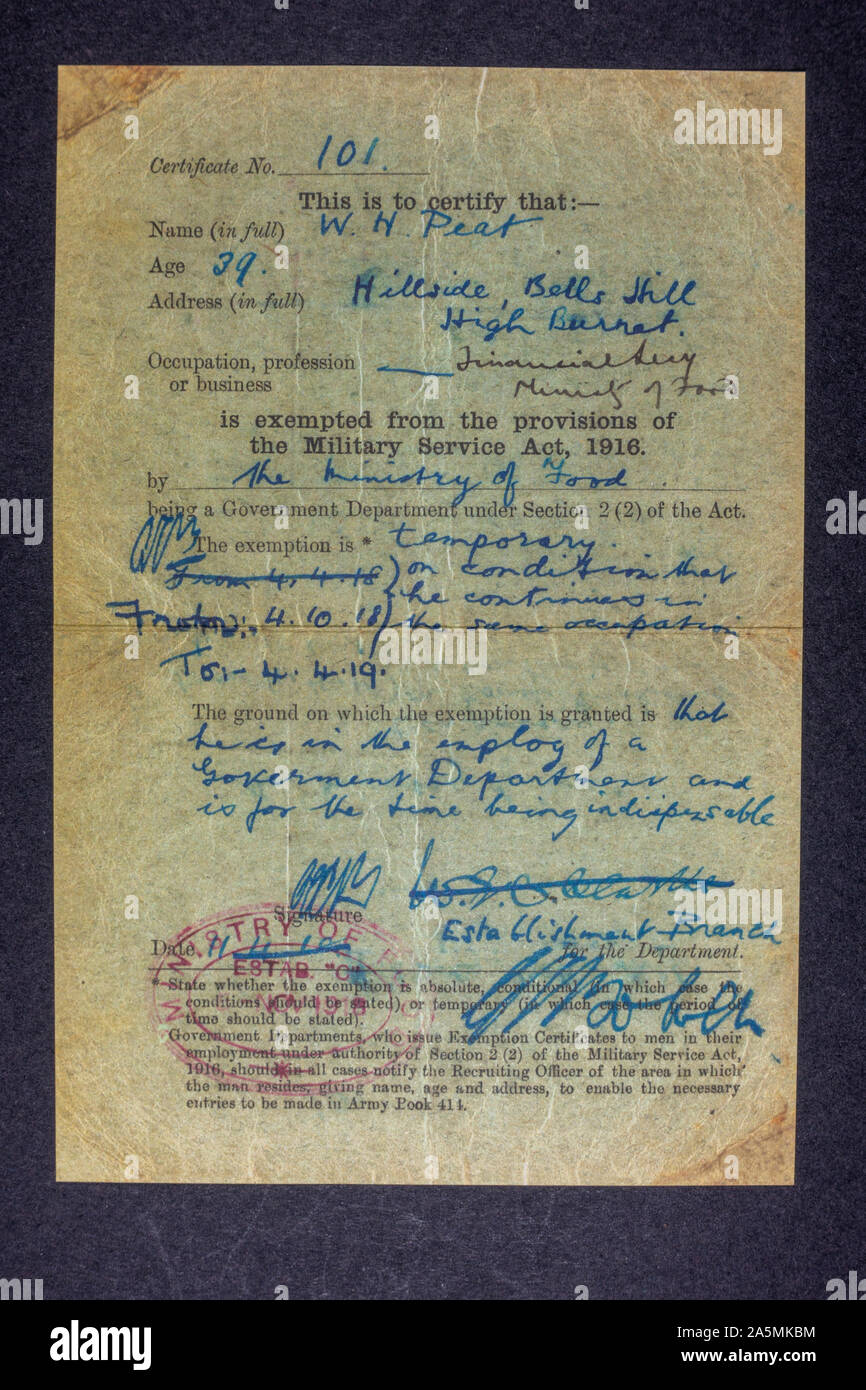 Certificate No. 101.
This is to certify that:—
Name (in full) W. H. Peat
Age 39.
Address (in full) Hillside, Bells Hill
High Burnet.
Occupation, profession
or business
Financial Secy
Ministry of Food
is exempted from the provisions of
the Military Service Act, 1916.
by the Ministry of Food.
being a Government Department under Section 2 (2) of the Act.
The exemption is * temporary.
From 4.4.18 ) on condition that
4.10.18 ) he continues in
the same occupation
To:- 4.4.19.
The ground on which the exemption is granted is that
he is in the employ of a
Goverment Department and
is for the time being indispensable
Signature
Establishment Branch
Date 11.4.18
for the Department.
MINISTRY OF
ESTAB. "C"
1918
* State whether the exemption is absolute, conditional (in which case the
conditions should be stated), or temporary (in which case the period of
time should be stated).
Government Departments, who issue Exemption Certificates to men in their
employment under authority of Section 2 (2) of the Military Service Act,
1916, should in all cases notify the Recruiting Officer of the area in which
the man resides, giving name, age and address, to enable the necessary
entries to be made in Army Book 414.
alamy
Image ID: 2A5MKBM
www.alamy.com